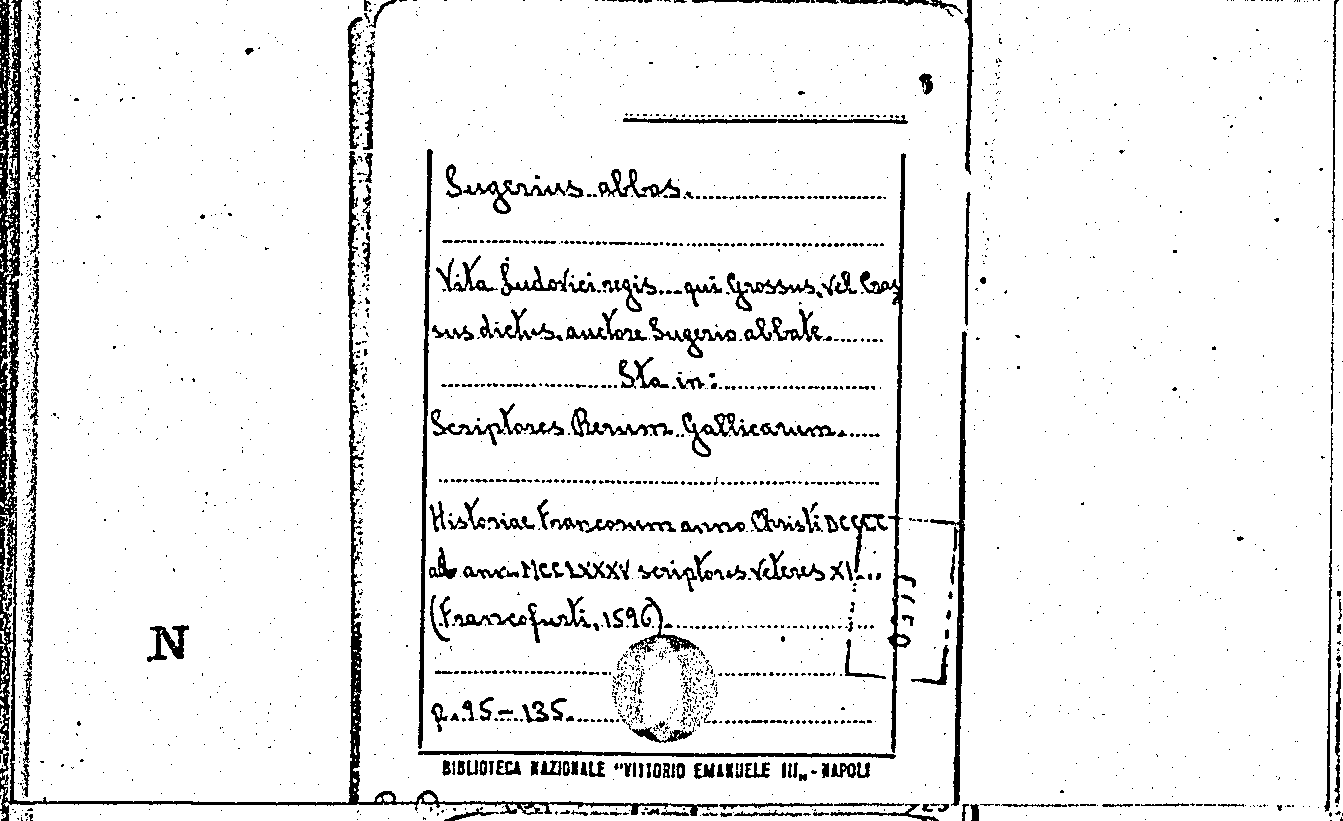 Sugerius abbas.
Vita Ludovici regis... qui Grossus, vel Cras
sus dictus, auctore Sugerio abbate.
Sta in:
Scriptores Rerum Gallicarum.
Historiae Francorum anno Christi DCCCC
ad ann. MCCLXXXV scriptores veteres XI...
(Francofurti, 1596).
N
p. 95-135.
BIBLIOTECA NAZIONALE "VITTORIO EMANUELE III„ - NAPOLI